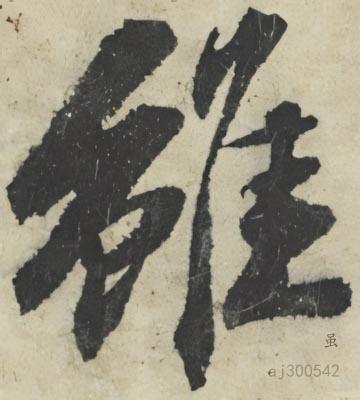 雖
虽
aj300542